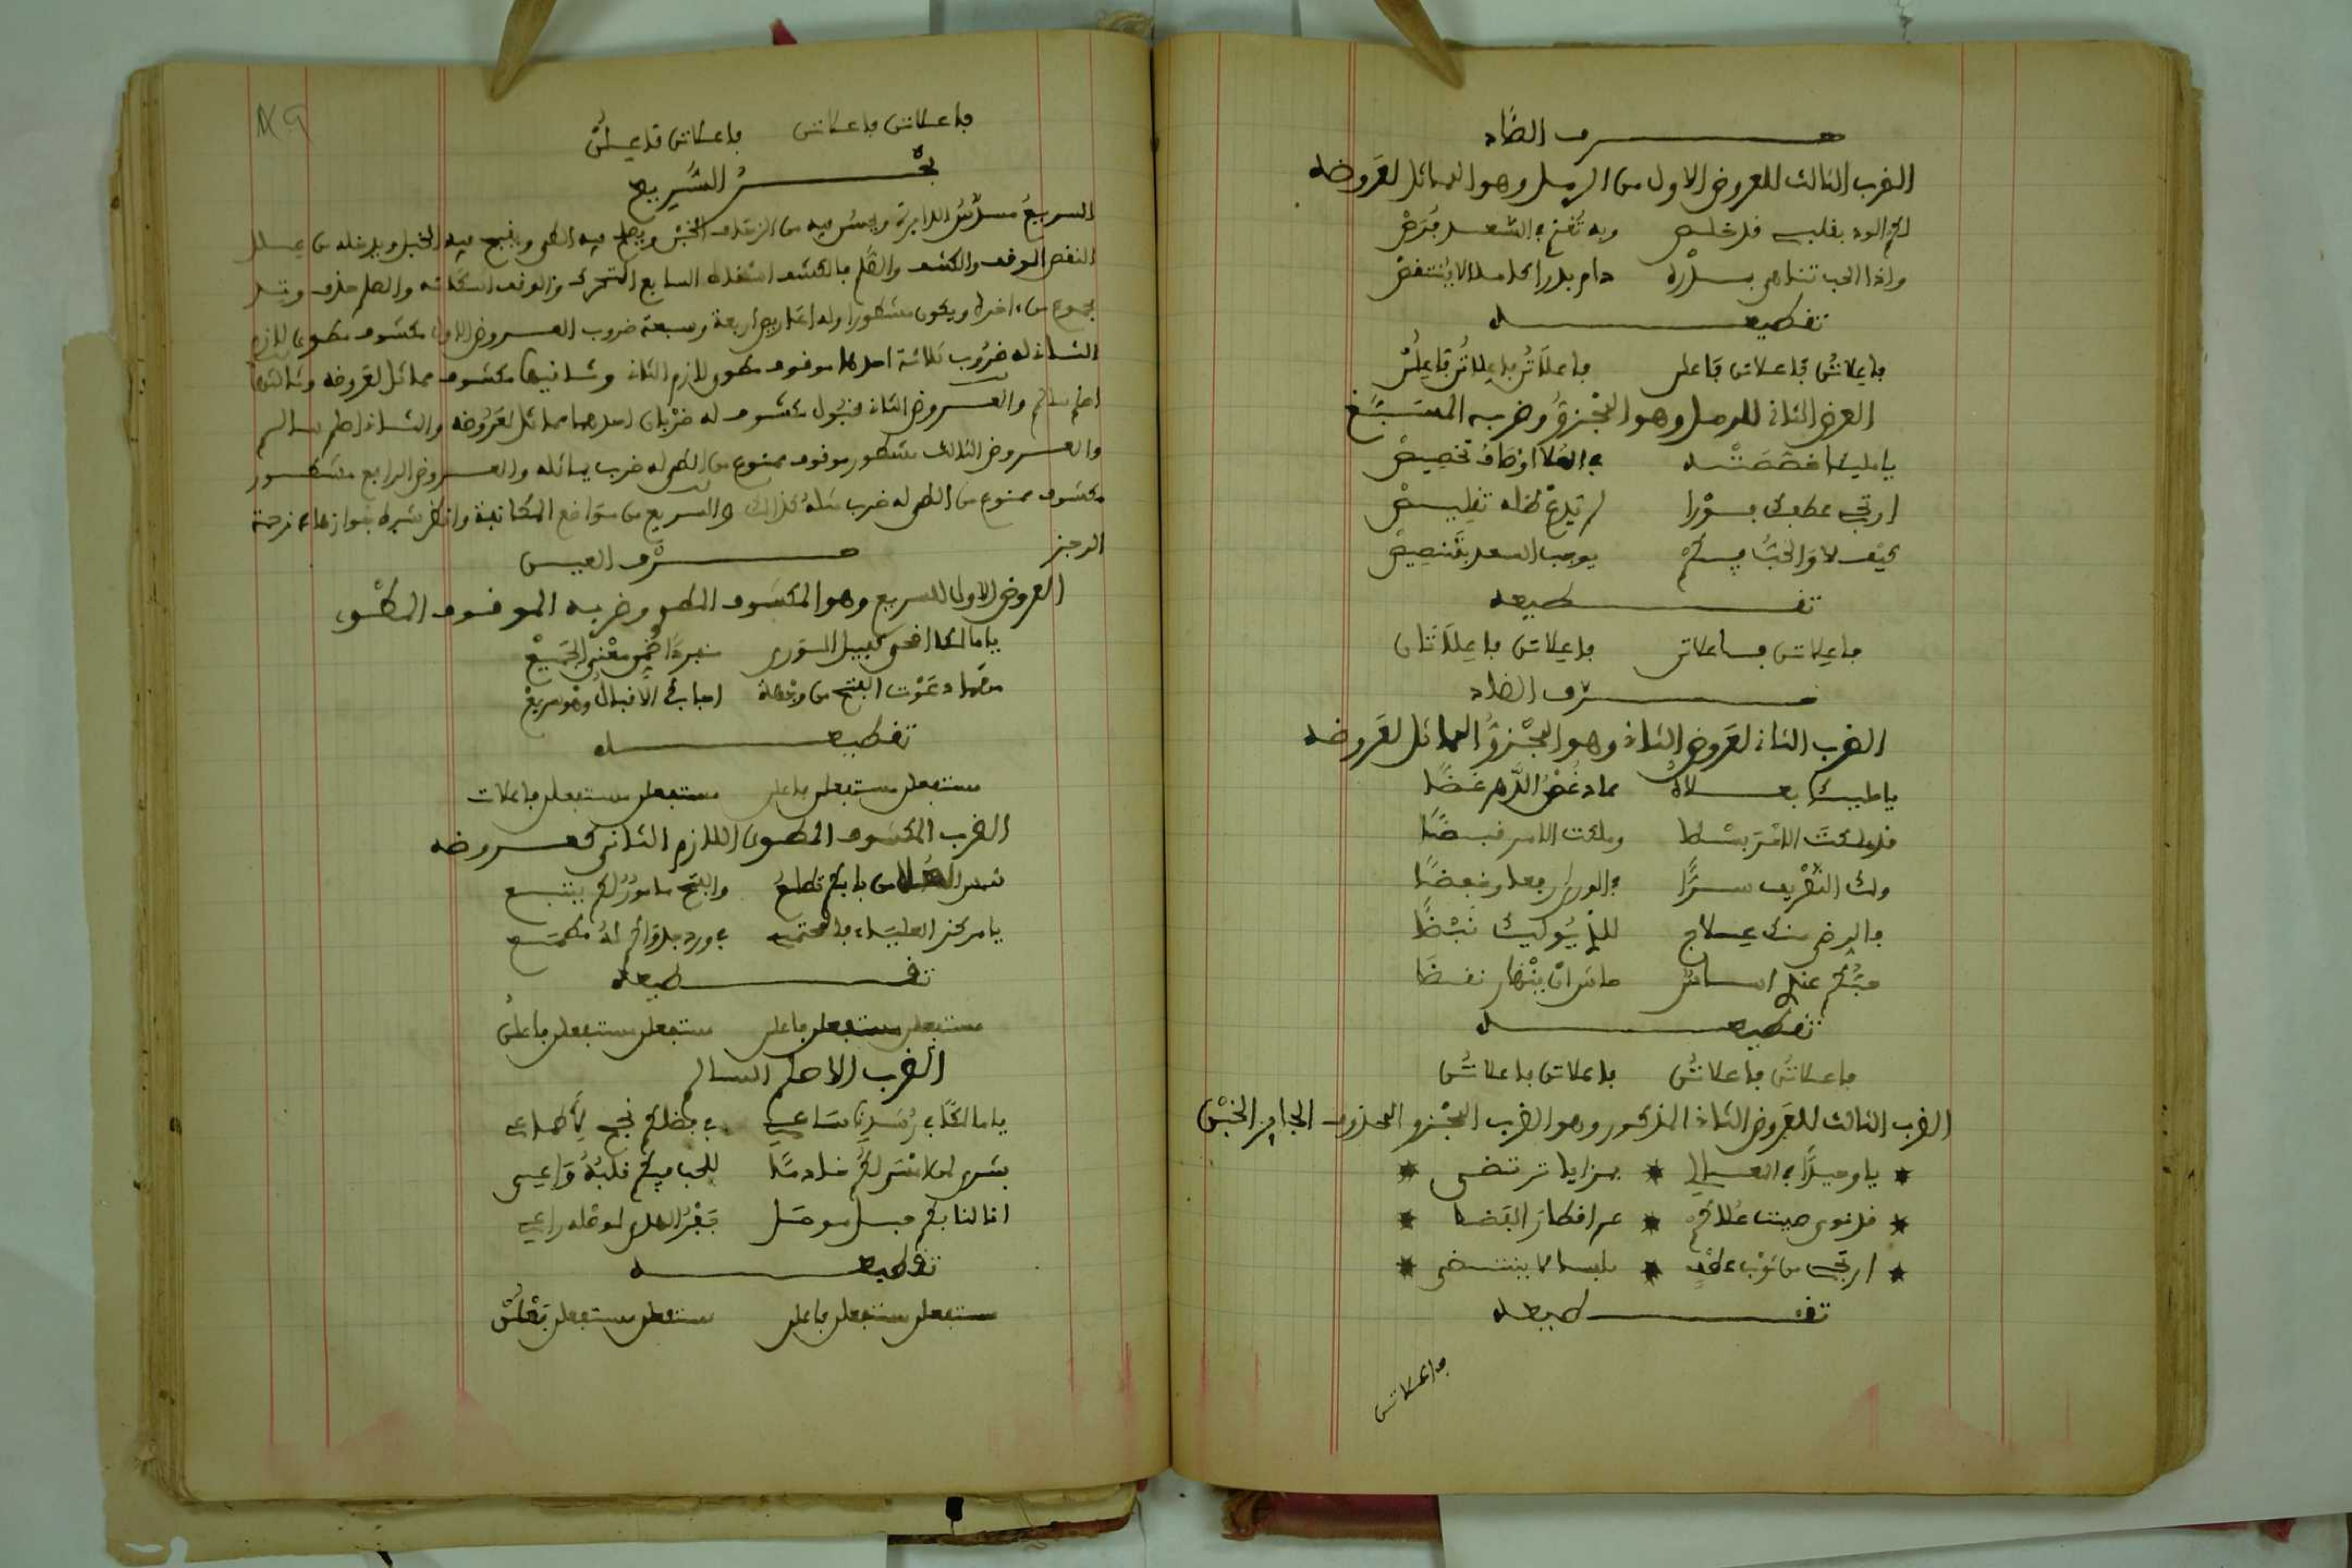 حرف الصاد
الضرب الثالث للعروض الاول من الرمل وهو المماثل لعروضه
لكم الود بقلبي قد خلص وبه تُغنى الشعد فرص
واذا الحب تناهى بدره دام بدرا كاملا لا ينتقص
تقطيعه
فاعلاتن فاعلاتن فاعلن فاعلاتن فاعلاتن فاعلن
العرض الثاني للرمل وهو المجزؤ وضربه المسبغ
يا مليكا خصصته في العلا اوصاف تخصيص
ارتجي عطفك فورا لم تدع
كيف لا والحب فيكم يوجب السعد بتنصيص
تقطيعه
فاعلاتن فاعلاتن فاعلاتن فاعلاتان
حرف الضاد
الضرب الثاني لعروض الثاني وهو المجزؤ المماثل لعروضه
يا مليكا بعلاه عاد غض الدهر غضا
قد ملكت الامر بسطا وملكت الامر قبضا
ولك التصريف سرا في الورى رفعا وخفضا
والرضى منك علاج للذي نبضا
حبكم عندي اساس حاش ان ينهار نقضا
تقطيعه
فاعلاتن فاعلاتن فاعلاتن فاعلاتن
الضرب الثالث للعروض الثاني المذكور وهو الضرب المجزو المحذوف الجايز الخبن
* يا وحيدا في المعالي * بمزايا ترتضى *
* قد نوى صيت علاكم * عم اقطار الفضا *
* ارتجي من ثوب * ملبسا لا ينتضى *
تقطيعه
فاعلاتن
فاعلاتن فاعلاتن فاعلاتن فاعلن
بحر السريع
السريع مسدس الدايرة ويحسن فيه من الزحاف الخبن ويصلح فيه الطي ويقبح فيه الخبل ويدخله من علل
النقص الوقف والكشف والصلم فالكشف اسقاط السابع المتحرك والوقف اسكانه والصلم حذف وتد
مجموع من اخره ويكون مشطورا وله اعاريض اربعة وسبعة ضروب العروض الاول مكسوف مطوي لازم
الثاني له ضروب ثلاثة احدها موقوف مطوي لازم الثاني وثانيها مكسوف مماثل لعروضه وثالثها
اصلم سالم والعروض الثاني مخبول مكسوف له ضربان احدهما مماثل لعروضه والثاني اصلم سالم
والعروض الثالث مشطور موقوف ممنوع من الطي له ضرب يماثله والعروض الرابع مشطور
مكسوف ممنوع من الطي له ضرب مثله كذالك والسريع من مواضع المكانفة وانظر شرط جوازها في ترجمة
الرجز
حرف العين
العروض الاول للسريع وهو المكسوف المطوي وضربه الموقوف المطوي
يا مالكا اضحى كبيل الورى منفردا فهو مغني الجميع
مهما دعوت الفتح من وجهة اجابك الاقبال وهو سريع
تقطيعه
مستفعلن مستفعلن فاعلن مستفعلن مستفعلن فاعلات
الضرب المكسوف المطوي اللازم الثاني كعروضه
شمس العلا من بابكم تطلع والفتح مامور لكم يتبع
يا مركز العلياء في وردجدواكم له مطمع
تقطيعه
مستفعلن مستفعلن فاعلن مستفعلن مستفعلن فاعلن
الضرب الاصلم السالم
يا مالكا في رشدنا ساعي في فضلكم نجح لاطماعي
بشرى لمن امسى لكم خادما للحب فيكم قلبه واعي
انا لنا بكم حبل موصل راعي
تقطيعه
مستفعلن مستفعلن فاعلن مستفعلن مستفعلن فعلن